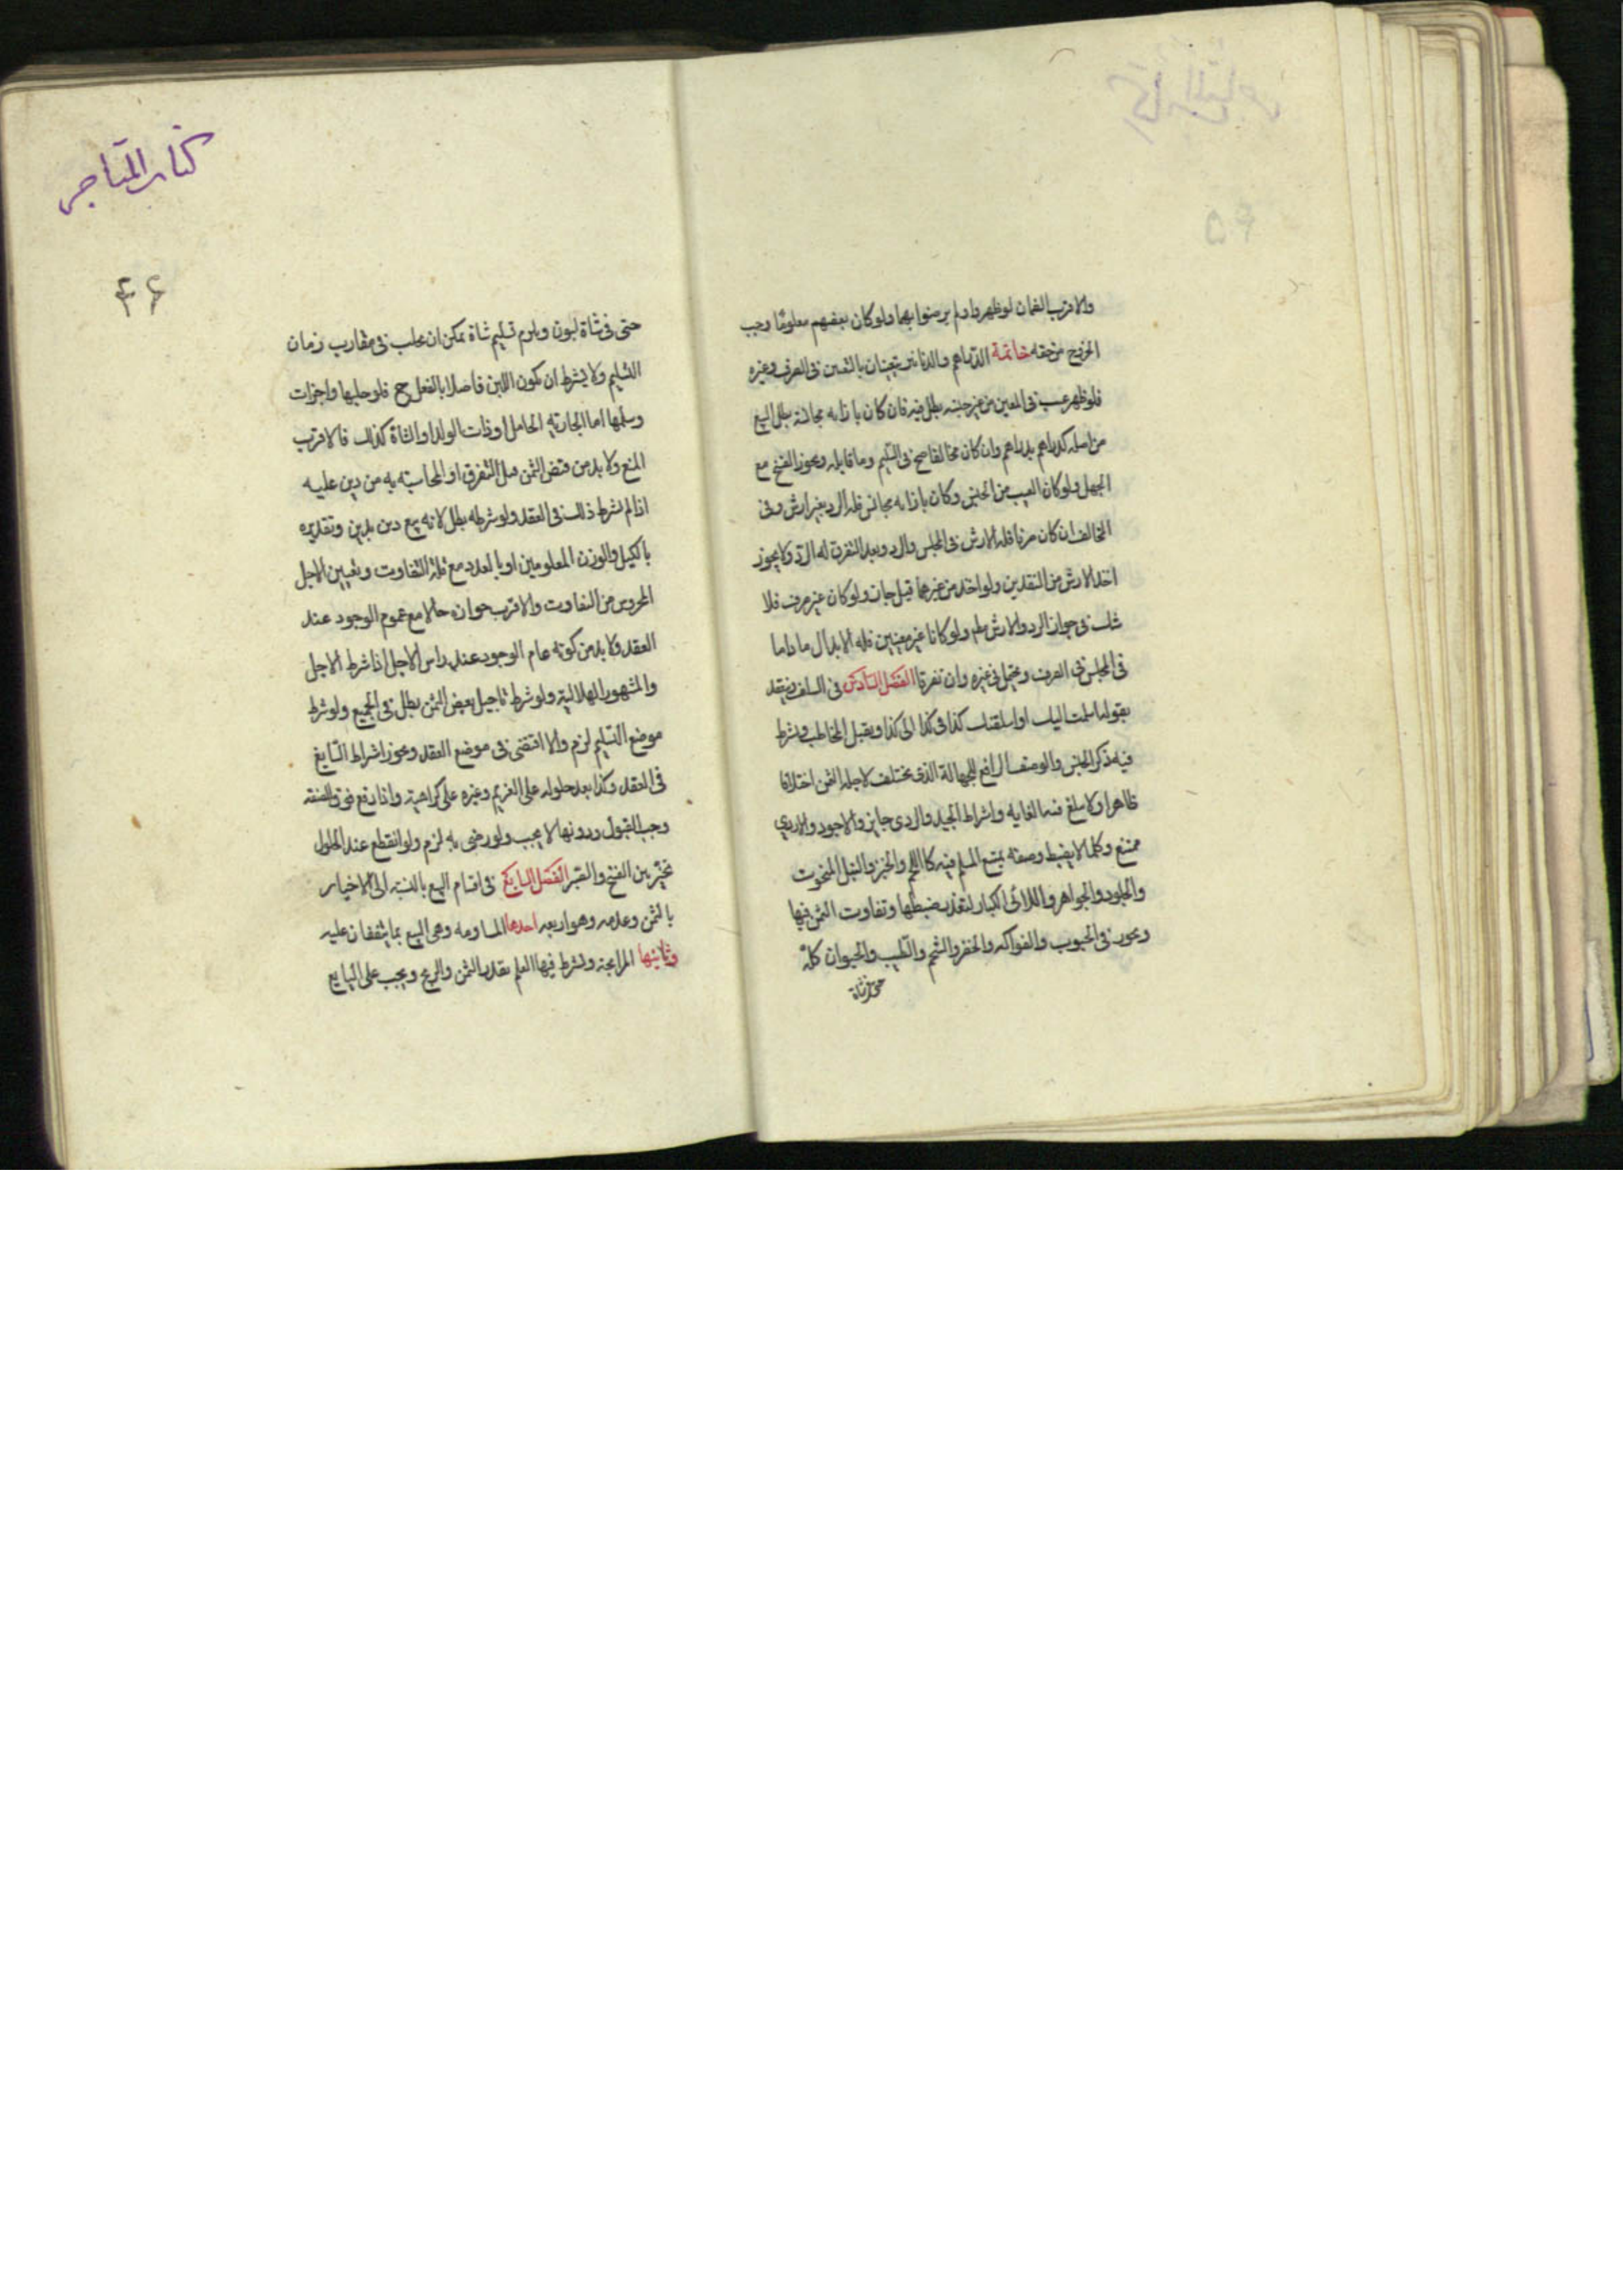 والاقرب الضمان لو ظهروا ولم يرضوا بها ولو كان بعضهم معلوما وجب
الخروج من حقه خاتمة الدراهم والدنانير يتعينان بالتعين فى الصرف وغيره
فلو ظهر عيب فى المعين من غير جنسه بطل فيه فان كان بازائه مجانسة بطل البيع
من اصله كدراهم بدراهم وان كان مخالفا صح فى السليم وما قابله ويجوز الفسخ مع
الجهل ولو كان العيب من الجنس وكان بازائه مجانس فله الرد بغير ارش وفى
المخالف ان كان صرفا فله الارش فى المجلس والرد وبعد التفرق له الرد ولا يجوز
اخذ الارش من النقدين ولو اخذ من غيرهما قيل جاز ولو كان غير صرف فلا
شك فى جواز الرد والارش مطم ولو كانا غير معينين فله الابدال ما داما
فى المجلس فى الصرف وغيره وان تفرقا الفصل السادس فى السلف وينعقد
بقوله اسلمت اليك او اسلفتك كذا فى كذا الى كذا ويقبل المخاطب ويشرط
فيه ذكر الجنس والوصف الرافع للجهالة الذى يختلف لاجله الثمن اختلافا
ظاهرا ولا يبلغ فيه الغايه واشراط الجيد والردى جايز والاجود والاردى
ممتنع وكلما لا يضبط وصفه يمتنع السلم فيه كاللحم والخبز والنبل المنحوت
والجلود والجواهر واللآلئ الكبار لتعذر ضبطها وتفاوت الثمن فيها
ويجوز فى الحبوب والفواكه والخضر والشحم والطيب والحيوان كله
حتى فى شاة
كتاب المتاجر
۴۶
حتى فى شاة لبون ويلزم تسليم شاة يمكن ان يحلب فى مقارب زمان
التسليم ولا يشرط ان يكون اللبن حاصلا بالفعل ح فلو حلبها واجزات
وسلمها اما الجاريه الحامل او ذات الولد او الشاة كذلك فالاقرب
المنع ولا بد من قبض الثمن قبل التفرق او المحاسبة به من دين عليه
اذا لم يشرط ذلك فى العقد ولو شرطه بطل لانه بيع دين بدين وتقديره
بالكيل والوزن المعلومين او بالعدد مع قلة التفاوت وتعيين الاجل
المحروس من التفاوت والاقرب جوازه حالا مع عموم الوجود عند
العقد ولا بد من كونه عام الوجود عند راس الاجل اذا شرط الاجل
والشهور الهلالية ولو شرط تاجيل بعض الثمن بطل فى الجميع ولو شرط
موضع التسليم لزم والا اقتضى فى موضع العقد ويجوز اشراط السايغ
فى العقد وكذا بعد حلوله على الغريم وغيره على كراهية واذا دفع فوق الصفة
وجب القبول ودونها لا يجب ولو رضى به لزم ولو انقطع عند الحلول
تخير بين الفسخ والصبر الفصل السابع فى اقسام البيع بالنسبة الى الاخبار
بالثمن وعدمه وهو اربعه احدها المساومه وهى البيع بما يتفقان عليه
وثانيها المرابحة ويشرط فيها العلم بقدر الثمن والربح ويجب على البايع